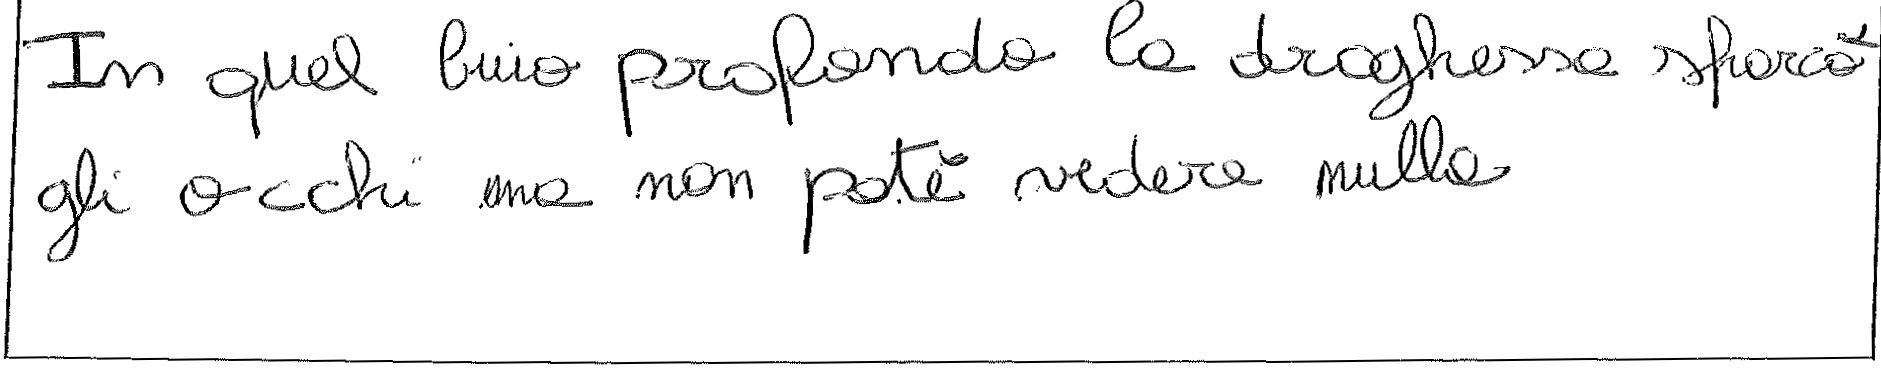 In quel buio profondo la draghessa sporcò
gli occhi ma non poté vedere nulla